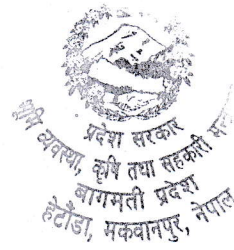 प्रदेश सरकार
भूमि व्यवस्था, कृषि तथा सहकारी
बागमती प्रदेश
हेटौंडा, मकवानपुर, नेपाल